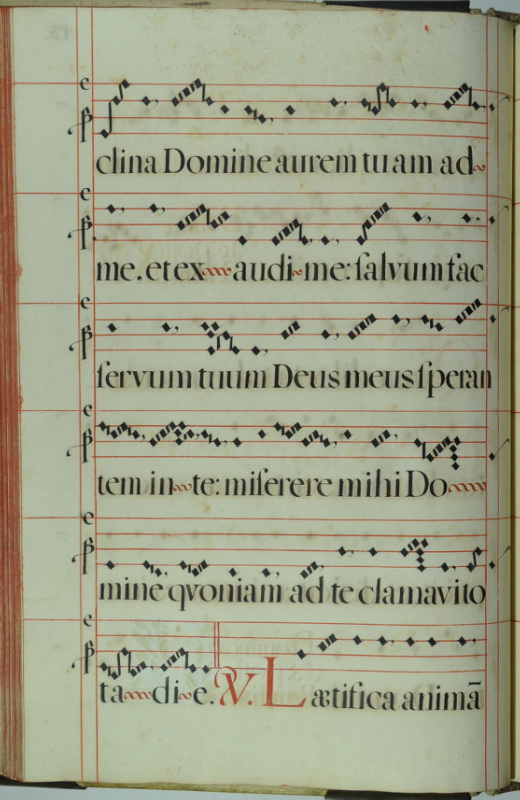 clina Domine aurem tuam ad
me. et ex audi me: ſalvum fac
ſervum tuum Deus meus ſperan
tem in te: miſerere mihi Do
mine qvoniam ad te clamavi to
ta di e. V. Lætifica animã